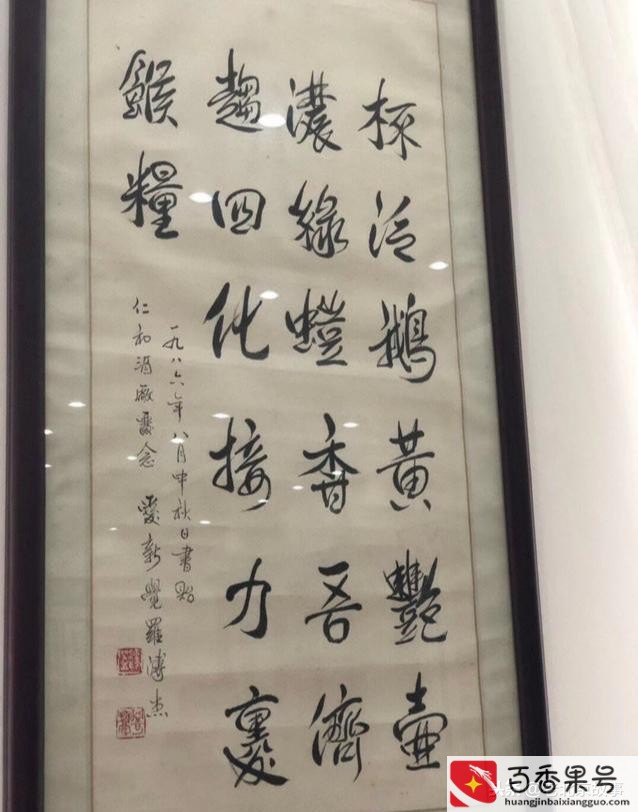 杯泛鵝黃艷壺
濃綠螘香吾儕
趨四化接力裹
餱糧
一九八六年八月中秋日書貽
仁和酒廠 念 愛新覺羅溥杰
故事
百香果号
huangjinbaixiangguo.com